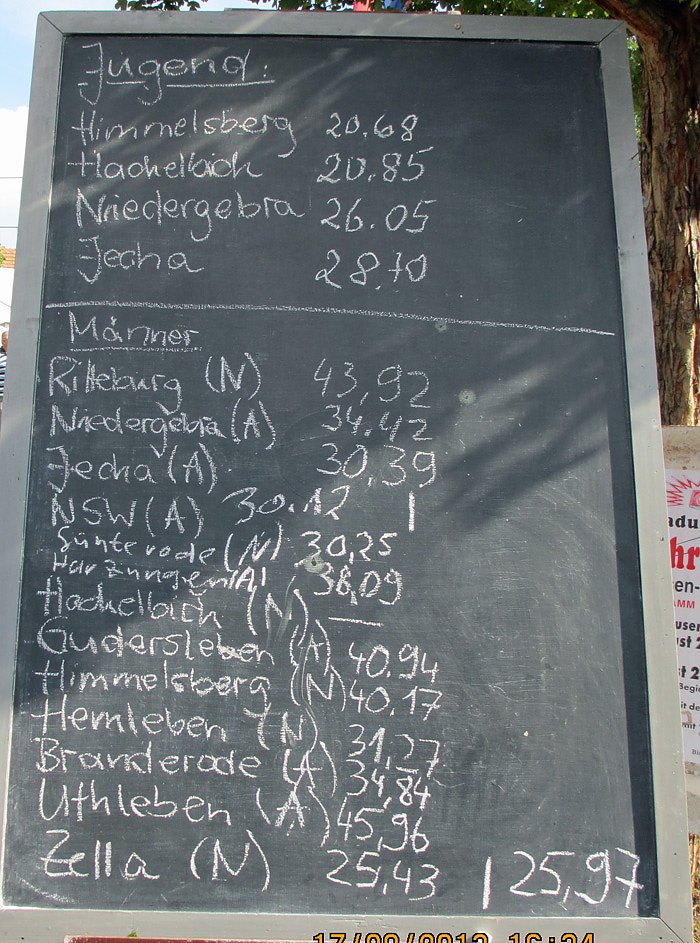 Jugend:
Himmelsberg 20.68
Hachelbich 20.85
Niedergebra 26.05
Jecha 28.70
Männer
Ritteburg (N) 43,92
Niedergebra (A) 34.42
Jecha (A) 30,39
NSW (A) 30.12 |
Günterode (N) 30,25
Harzungen (A) 38,09
Hachelbich (N) —
Gudersleben (A) 40.94
Himmelsberg (N) 40.17
Hemleben (N) 31,27
Branderode (A) 34,84
Uthleben (A) 45,96
Zella (N) 25,43 | 25,97